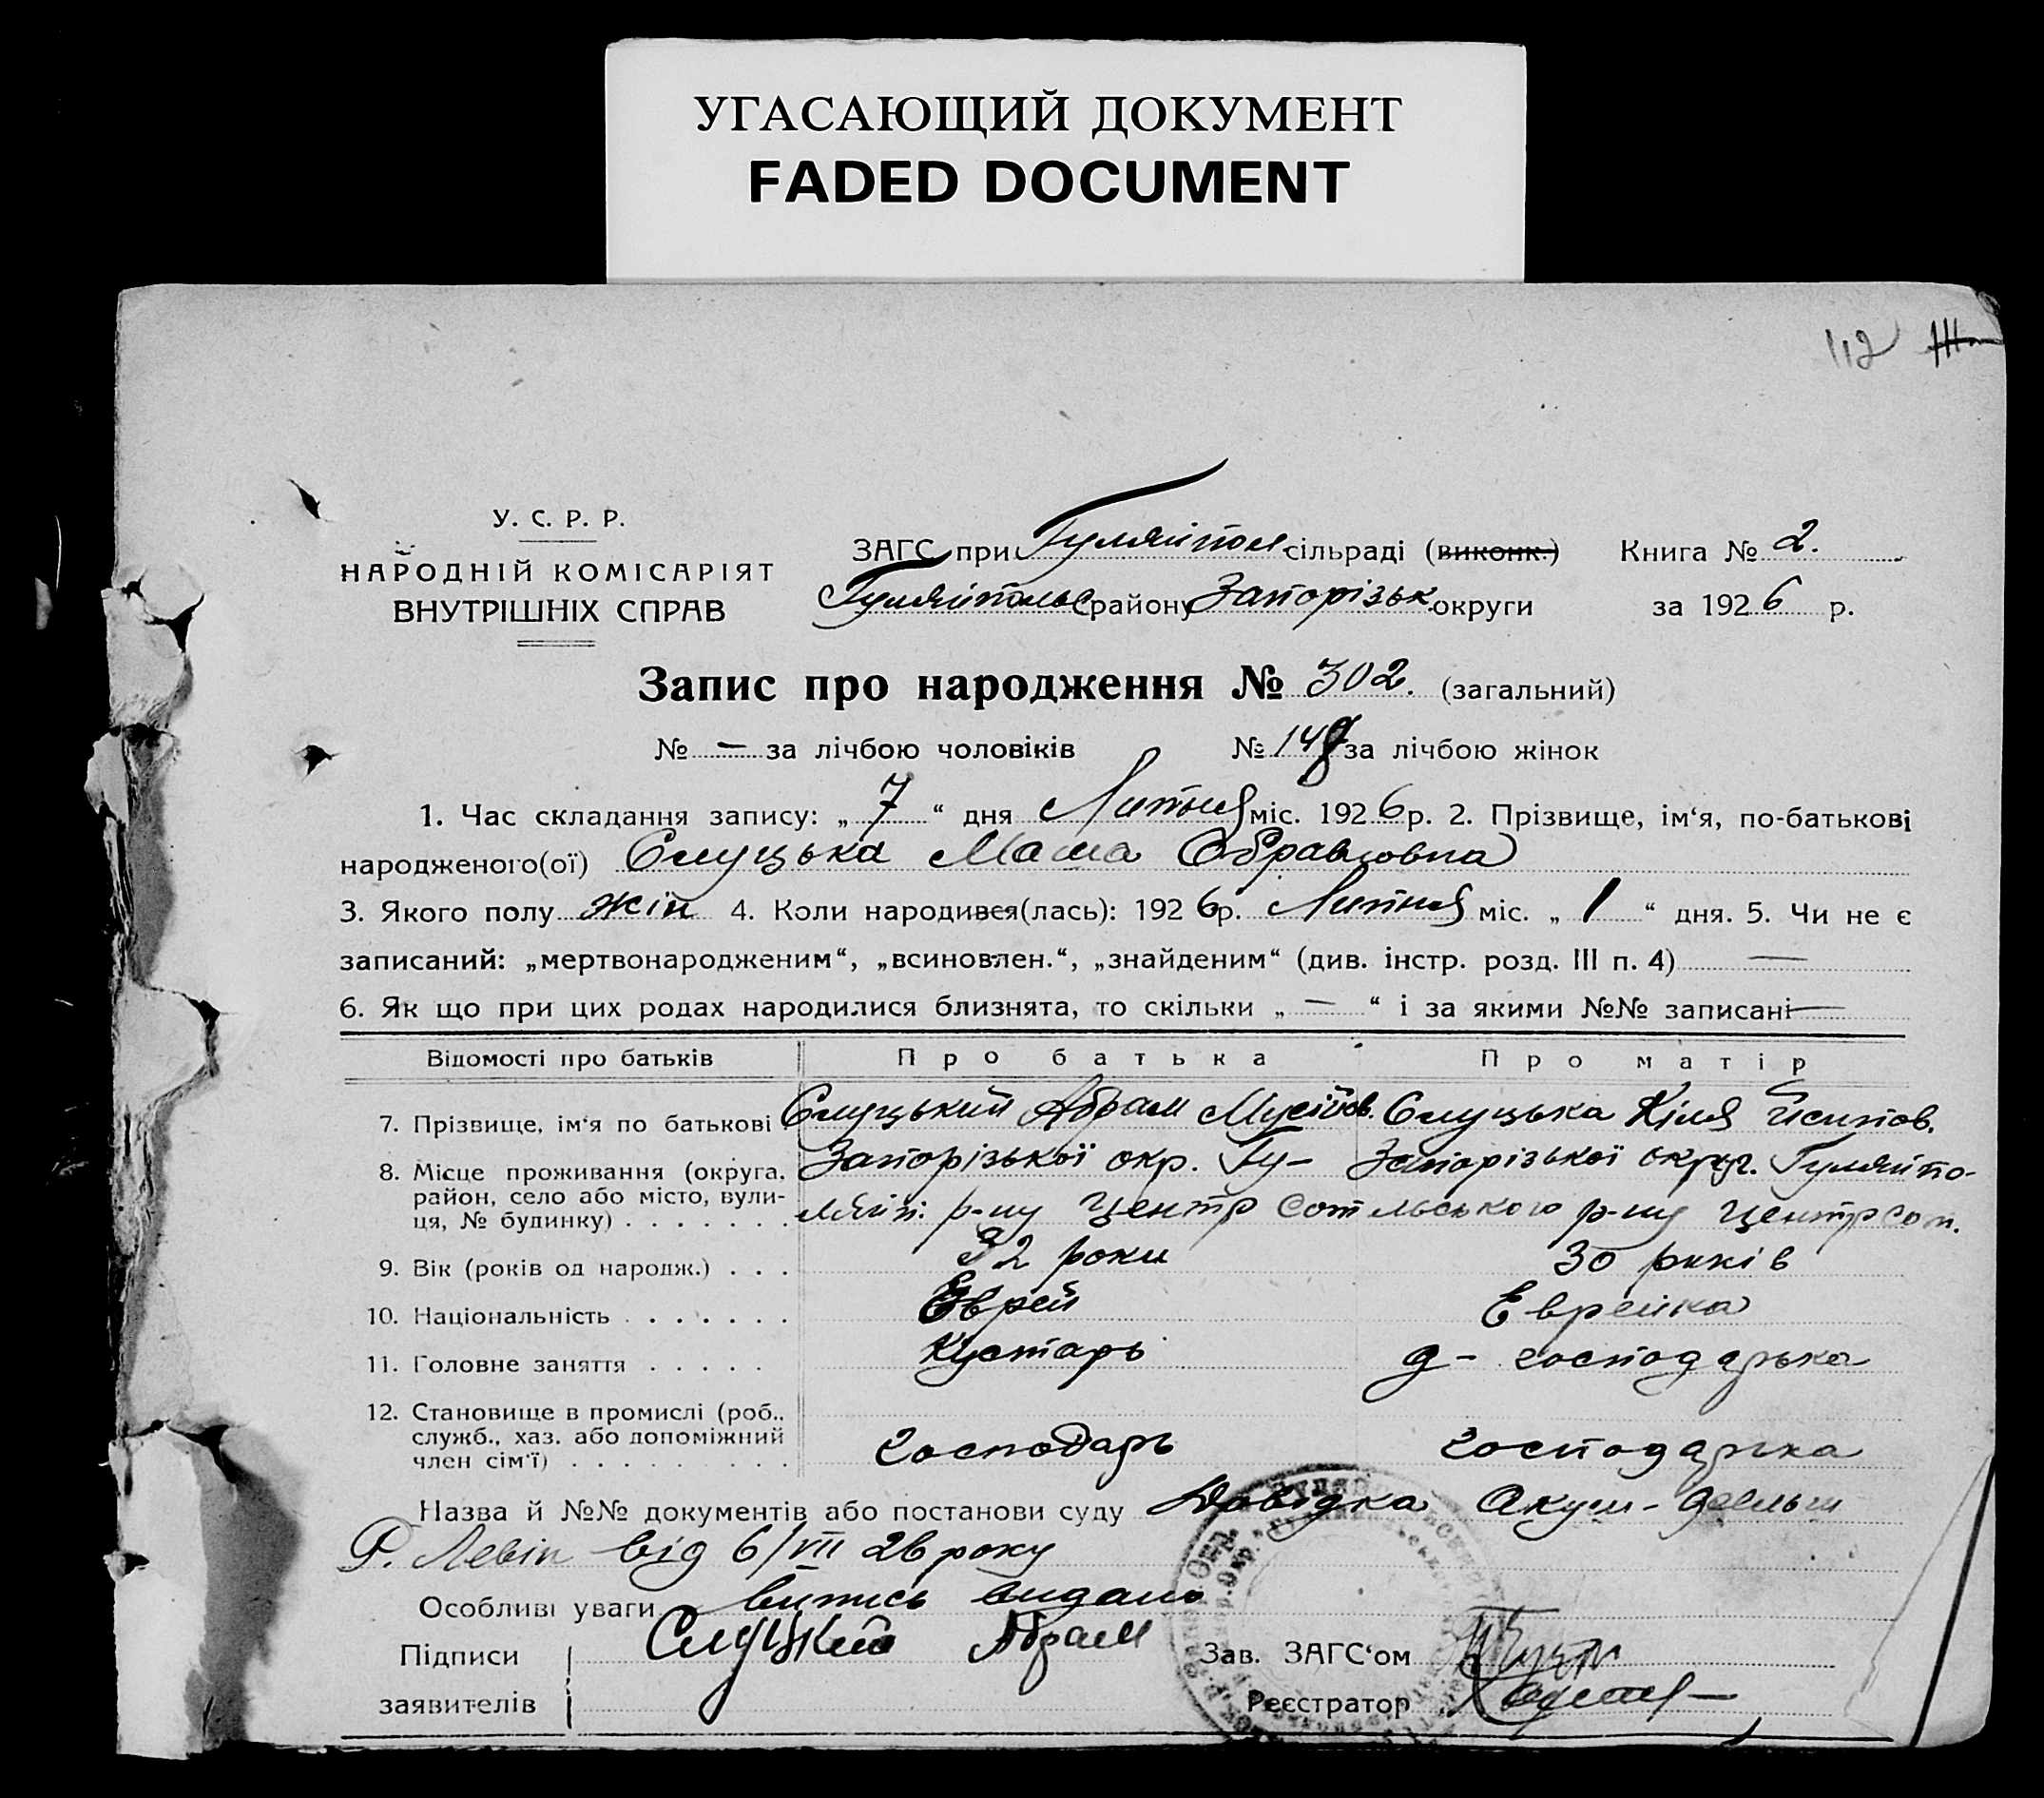 УГАСАЮЩИЙ ДОКУМЕНТ
FADED DOCUMENT
112
У. С. Р. Р.
НАРОДНІЙ КОМІСАРІЯТ
ВНУТРІШНІХ СПРАВ
ЗАГС при Гуляйпол сільраді (виконк.) Книга № 2.
Гуляйпольс району Запорізьк округи за 1926 р.
Запис про народження № 302. (загальний)
№ — за лічбою чоловіків № 148 за лічбою жінок
1. Час складання запису: „ 7 “ дня Липня міс. 1926 р. 2. Прізвище, ім‘я, по-батькові
народженого(ої) Слуцька Маша Обрамовна
3. Якого полу жін 4. Коли народився(лась): 1926 р. Липня міс. „ 1 “ дня. 5. Чи не є
записаний: „мертвонародженим“, „всиновлен.“, „знайденим“ (див. інстр. розд. III п. 4) —
6. Як що при цих родах народилися близнята, то скільки „ — “ і за якими №№ записані —
Відомості про батьків Про батька Про матір
7. Прізвище, ім‘я по батькові Слуцький Абрам Мусійов. Слуцька Кіля Йсипов.
8. Місце проживання (округа, Запорізької окр. Гу- Запорізької округ. Гуляйпо-
район, село або місто, вули- ляйп. р-ну Центр сот льського р-ну Центр сот.
ця, № будинку)
9. Вік (років од народж.) 32 роки 30 років
10. Національність Еврей Еврейка
11. Головне заняття Кустарь д- господарька
12. Становище в промислі (роб.,
служб., хаз. або допоміжний Господарь господарька
член сім‘ї)
Назва й №№ документів або постанови суду Довідка Акуш-
Р. Левін від 6/VII 26 року
Особливі уваги Випись видано
Підписи Слуцкий Абрам Зав. ЗАГС‘ом
заявителів Реєстратор